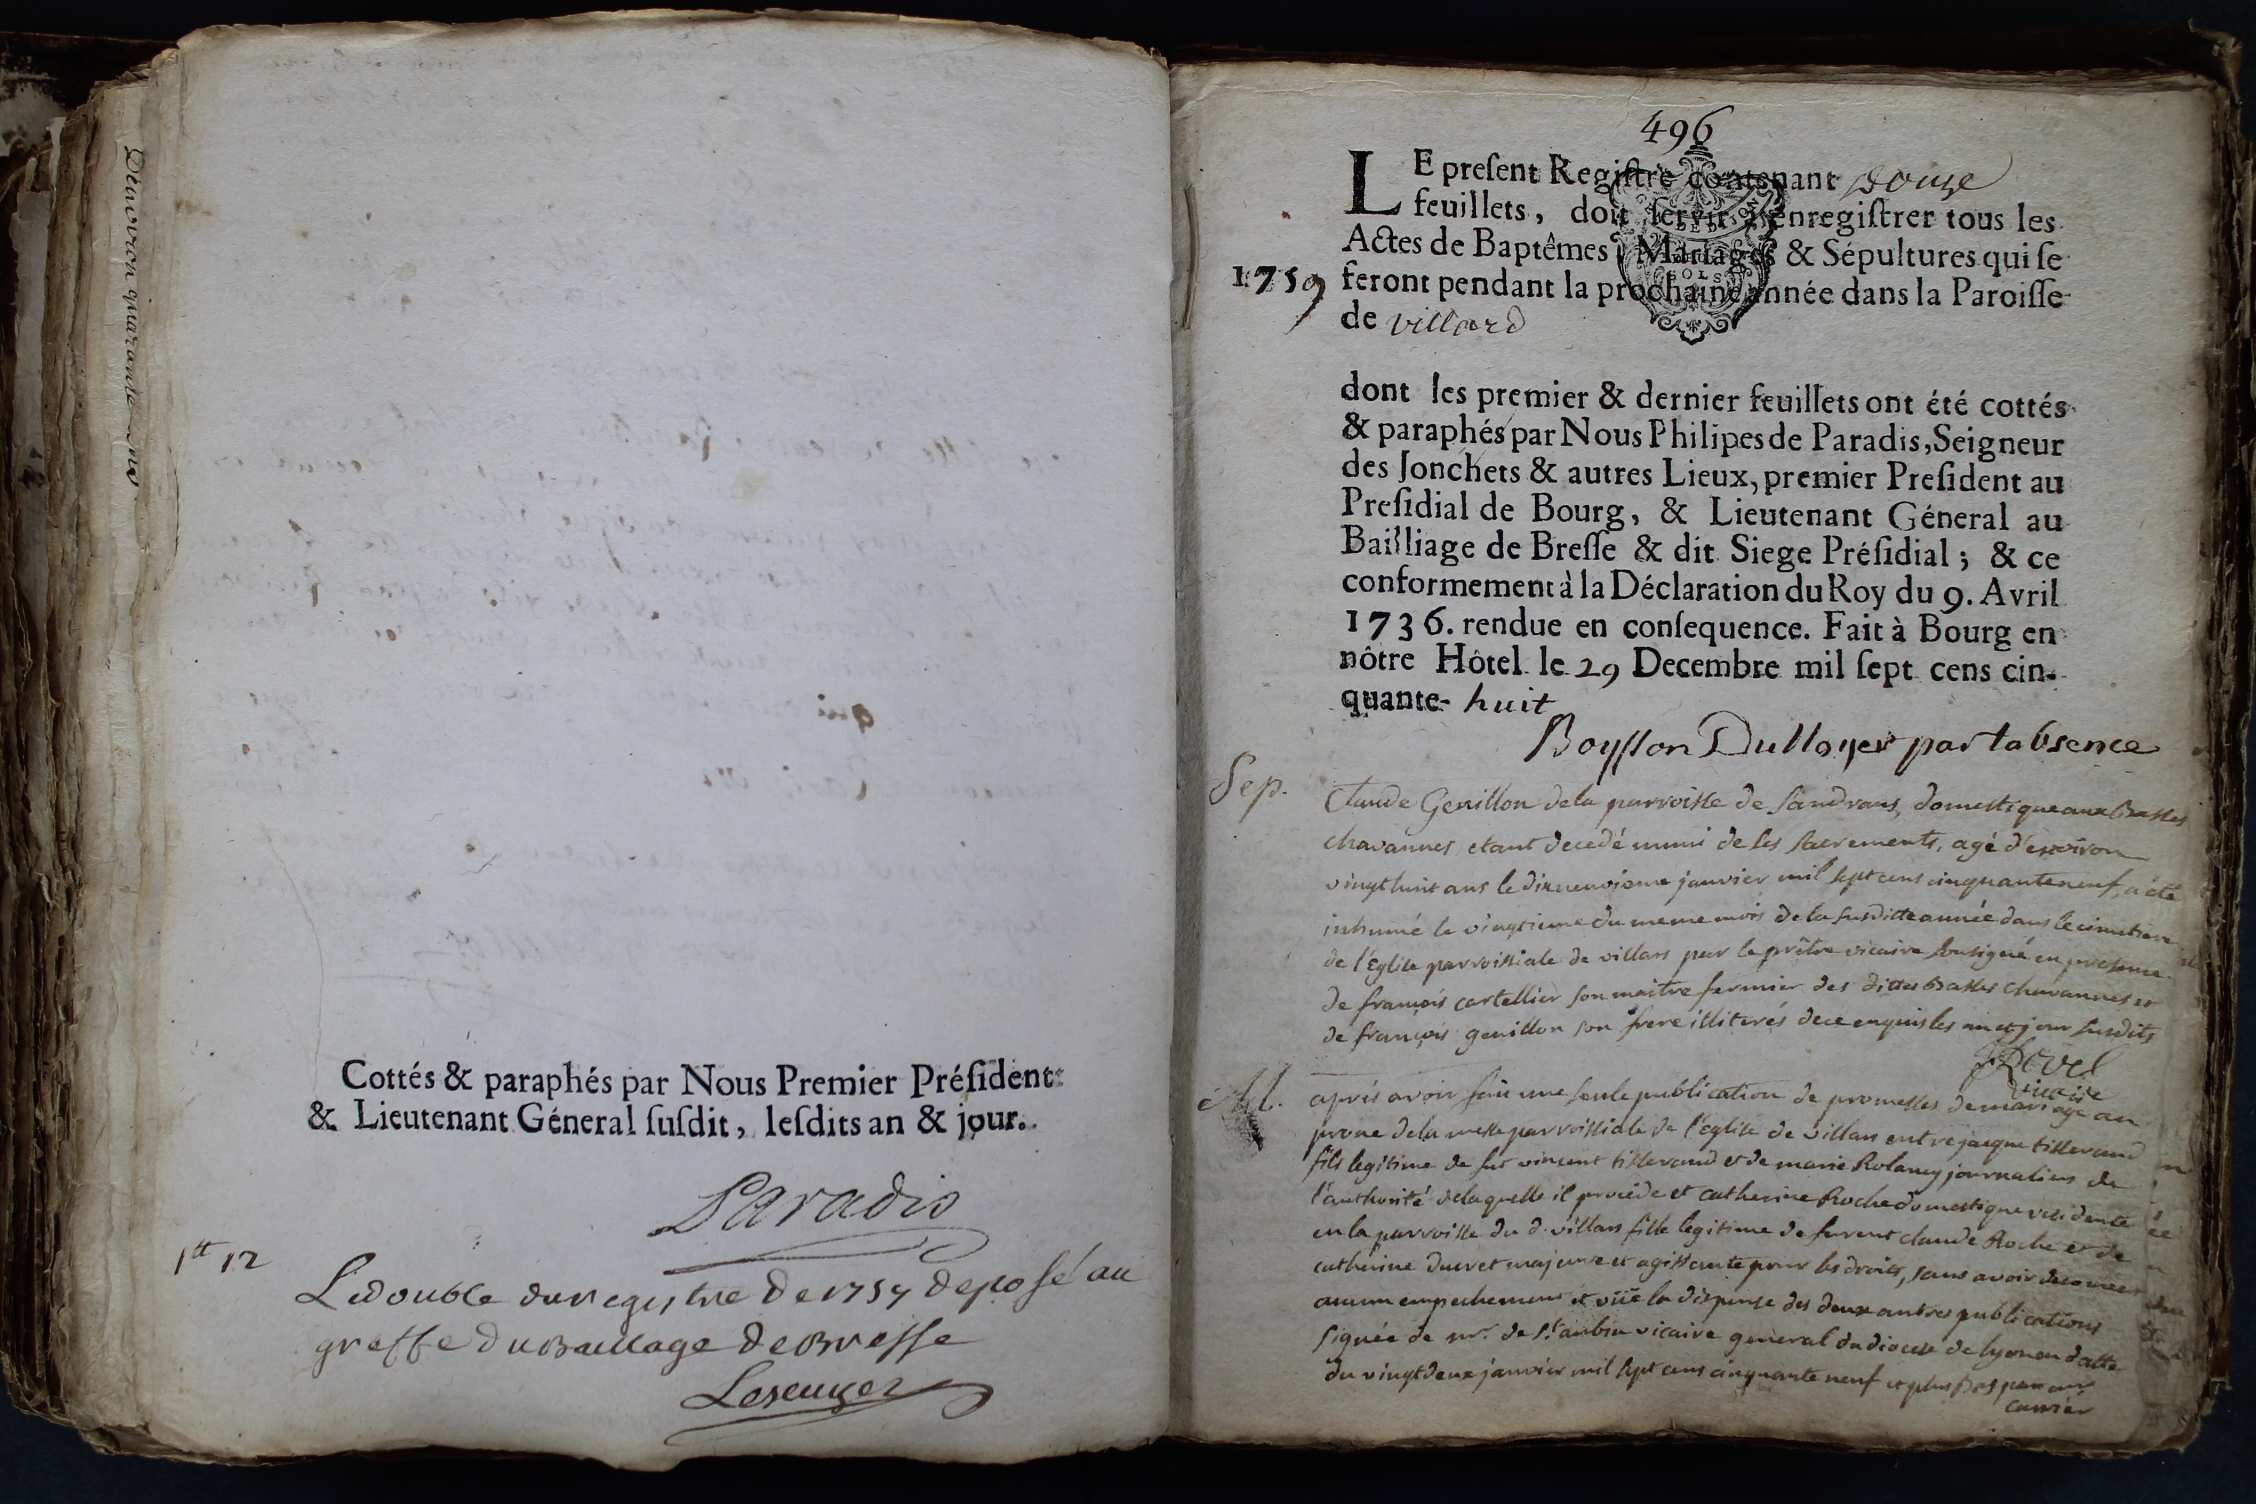 D'environ quarante ans
Cottés & paraphés par Nous Premier Préſident
& Lieutenant Géneral ſuſdit, leſdits an & jour.
Paradis
1tt 12
Le double du registre de 1757 deposé au
greffe du Baillage de Bresse
496
LE preſent Regiſtre contenant douze
feuillets, doit ſervir à enregiſtrer tous les
Actes de Baptêmes, Mariages & Sépultures qui ſe
1759 feront pendant la prochaine année dans la Paroiſſe
de villard
dont les premier & dernier feuillets ont été cottés
& paraphés par Nous Philipes de Paradis, Seigneur
des Jonchets & autres Lieux, premier Preſident au
Preſidial de Bourg, & Lieutenant Géneral au
Bailliage de Breſſe & dit Siege Préſidial ; & ce
conformement à la Déclaration du Roy du 9. Avril
1736. rendue en conſequence. Fait à Bourg en
nôtre Hôtel le 29 Decembre mil ſept cens cin-
quante- huit
par labsence
Sep. Claude Genillon de la parroisse de sandrans, domestique aux Basses
chavannes etant decedé muni de ses sacrements, agé d'environ
vingt huit ans le dixneuvieme janvier mil sept cens cinquante neuf, a été
inhumé le vingtieme du meme mois de la susditte année dans le cimetiere
de l'Eglise parroissiale de villars par le prêtre vicaire soussigné en presence
de françois cartellier son maitre fermier des dittes Basses chavannes et
de françois genillon son frere illiterés de ce enquis les an et jour susdits
Revel
vicaire
M. aprés avoir fait une seule publication de promesses de mariage au
prone de la messe parroissiale de l'eglise de villars entre jacque tisserand
fils legitime de fut vincent tisserand et de marie Rolancy journaliers de
l'authorité de laquelle il procede et catherine Roche domestique residente
en la parroisse du d. villars fille legitime de furent claude Roche et de
catherine ducret majeure et agissante pour ses droits, sans avoir decouvert
aucun empechement et vüe la dispense des deux autres publications
signée de mr. de st. aubin vicaire general du diocese de lyon en datte
du vingt deux janvier mil sept cens cinquante neuf et plus bas par mr.